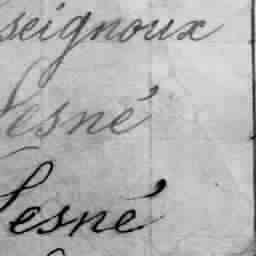 seignoux
Lesné
Lesné